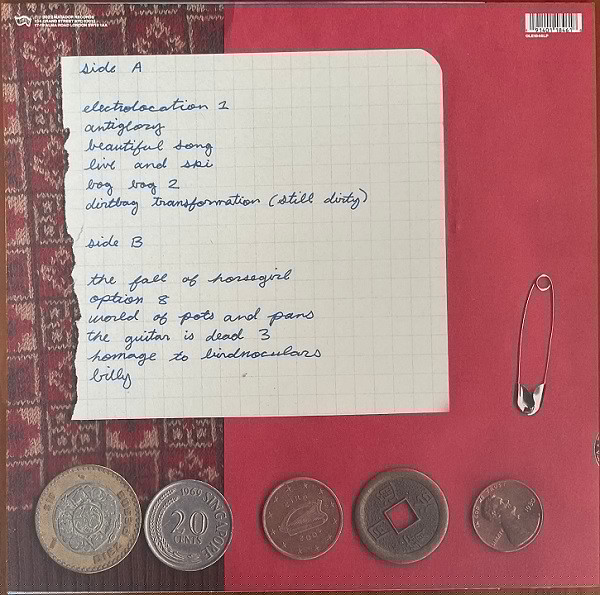 2022 MATADOR RECORDS
side A
electrolocation 1
antiglory
beautiful song
live and ski
bog bog 2
dirtbag transformation (still dirty)
side B
the fall of horsegirl
option 8
world of pots and pans
the guitar is dead 3
homage to birdnoculars
billy
1969 SINGAPORE
20
CENTS